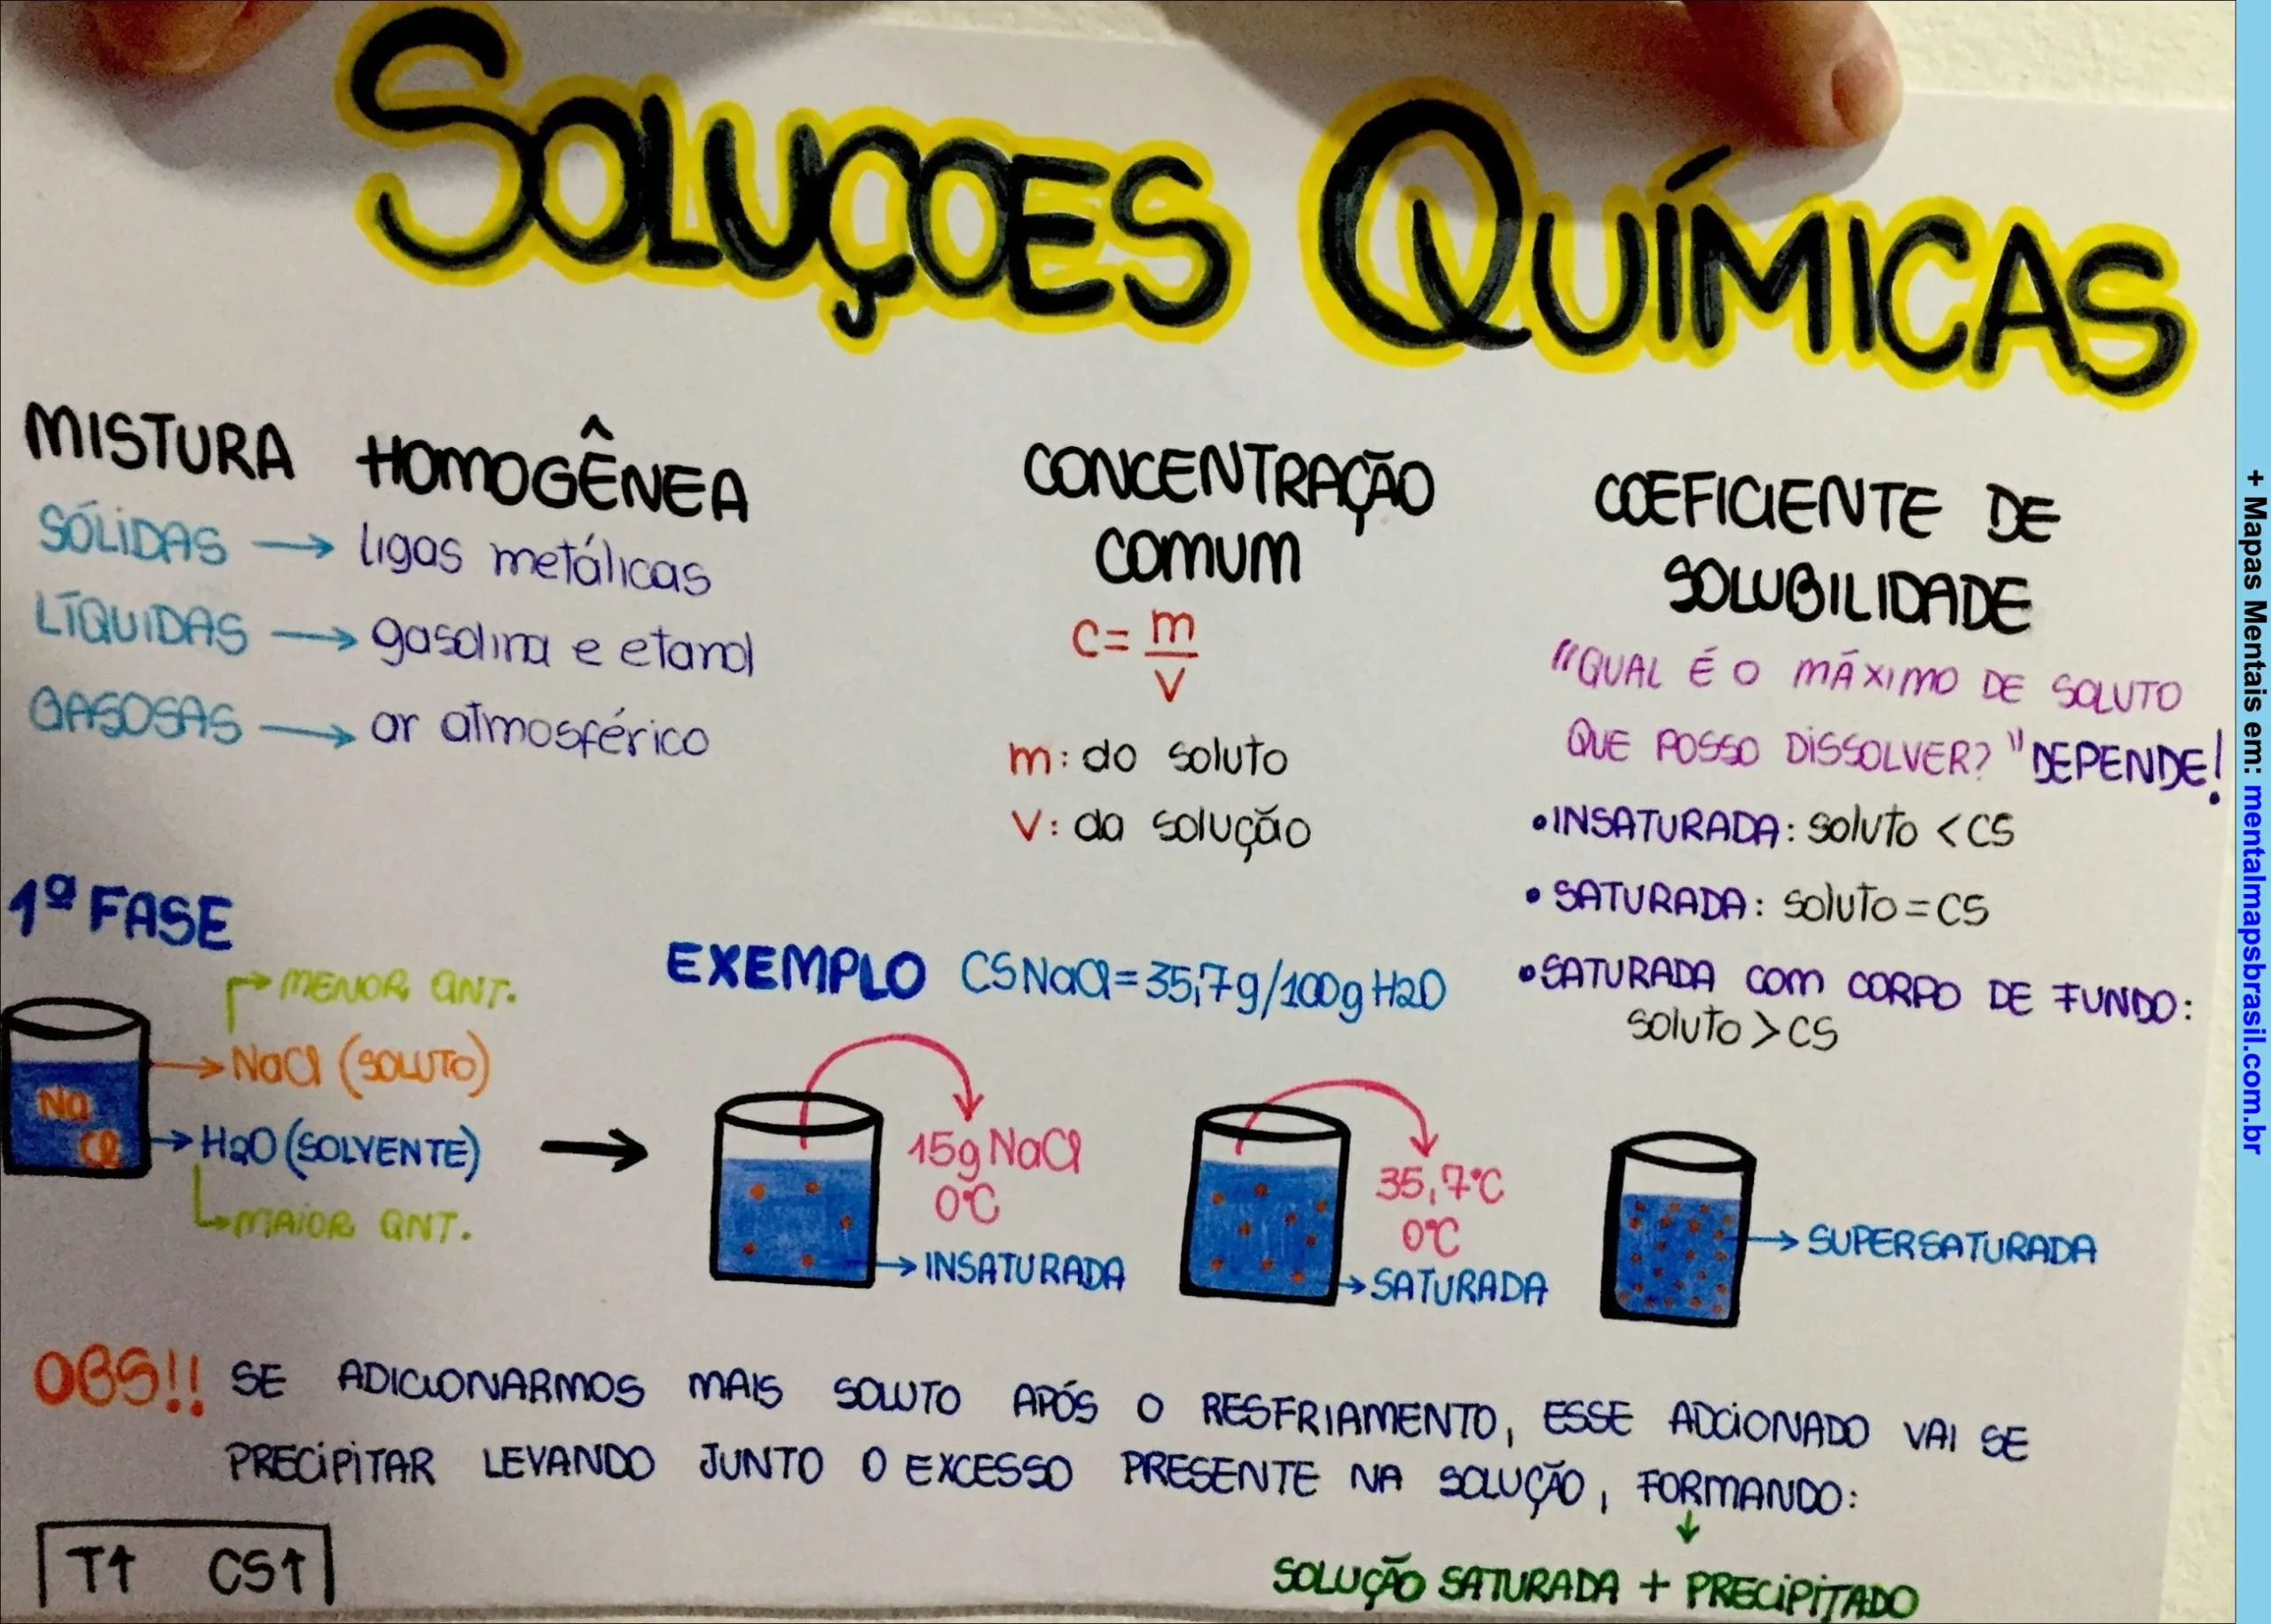 SOLUÇOES QUÍMICAS
MISTURA HOMOGÊNEA
SÓLIDAS → ligas metálicas
LÍQUIDAS → gasolina e etanol
GASOSAS → ar atmosférico
CONCENTRAÇÃO
COMUM
C = m
V
m: do soluto
V: da solução
COEFICIENTE DE
SOLUBILIDADE
"QUAL É O MÁXIMO DE SOLUTO
QUE POSSO DISSOLVER?" DEPENDE!
• INSATURADA: soluto < CS
• SATURADA: soluto = CS
• SATURADA COM CORPO DE FUNDO:
soluto > CS
1ª FASE
MENOR QNT.
NaCl (SOLUTO)
H2O (SOLVENTE)
MAIOR QNT.
Na
Cl
EXEMPLO CS NaCl = 35,7g/100g H2O
15g NaCl
0°C
INSATURADA
35,7°C
0°C
SATURADA
SUPERSATURADA
OBS!! SE ADICIONARMOS MAIS SOLUTO APÓS O RESFRIAMENTO, ESSE ADCIONADO VAI SE
PRECIPITAR LEVANDO JUNTO O EXCESSO PRESENTE NA SOLUÇÃO, FORMANDO:
SOLUÇÃO SATURADA + PRECIPITADO
T↑ CS↑
+ Mapas Mentais em: mentalmapsbrasil.com.br